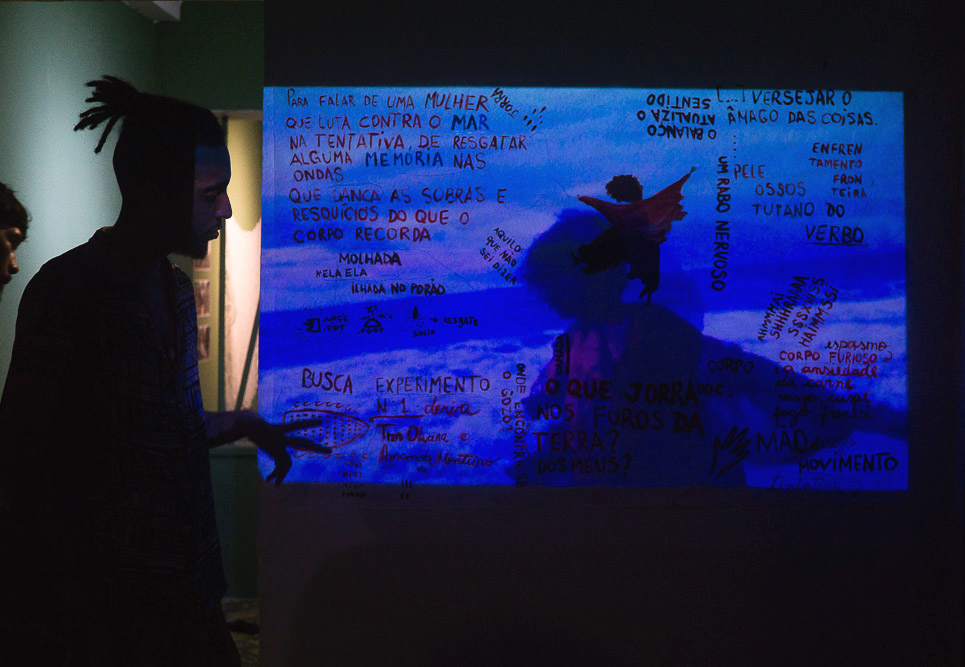 PARA FALAR DE UMA MULHER
QUE LUTA CONTRA O MAR
NA TENTATIVA, DE RESGATAR
ALGUMA MEMÓRIA NAS
ONDAS
QUE DANÇA AS SOBRAS E
RESQUÍCIOS DO QUE O
CORPO RECORDA
MOLHADA
NELA ELA
ILHADA NO PORÃO
JORRA
AQUILO
QUE NÃO
SEI DIZER
→ resgate
BUSCA
EXPERIMENTO
Nº 1 deriva
e
ONDE ENCONTRO
O GOZO?
O BALANÇO
ATUALIZA O
SENTIDO
[...] VERSEJAR O
ÂMAGO DAS COISAS.
UM RABO NERVOSO
PELE
OSSOS
TUTANO DO
VERBO
ENFREN
TAMENTO
FRON
TEIRA
O QUE JORRA
NOS FUROS DA
TERRA?
DOS MEUS?
CORPO
espasmo
CORPO FURIOSO?
a ansiedade
da carne
MOVIMENTO